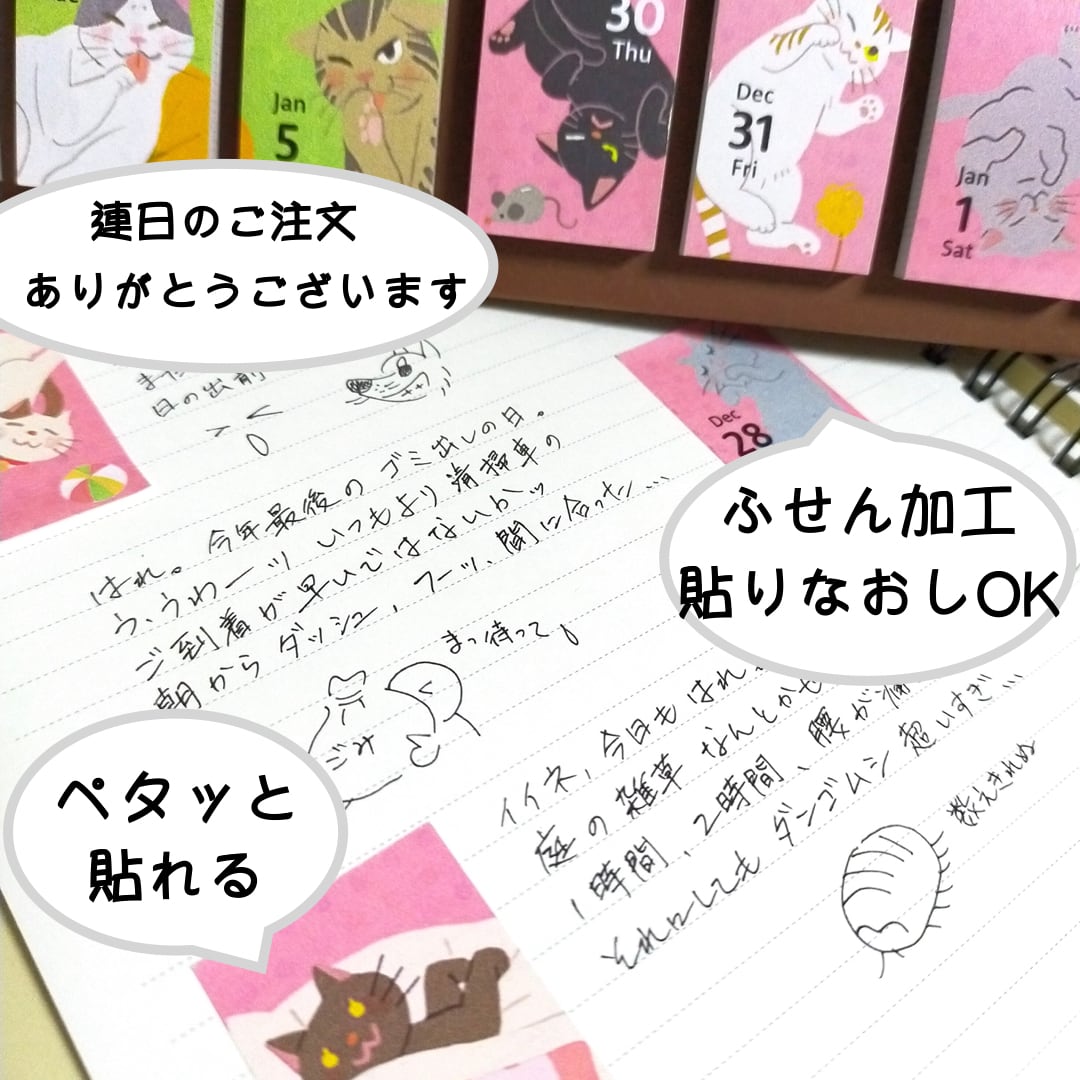 30
Thu
Dec
31
Fri
Jan
5
Jan
1
Sat
連日のご注文
ありがとうございます
日の出前
Dec
28
ふせん加工
貼りなおしOK
はれ。今年最後のゴミ出しの日。
う、うわーッ いつもより清掃車の
ご到着が早いではないかッ
朝からダッシュ、フーッ、間に合った…
まっ待って
ごみ
ペタッと
貼れる
イイネ、今日もはれ
庭の雑草なんとかせ
1時間、2時間、腰が痛
それにしてもダンゴムシ超いすぎ…
数えきれぬ